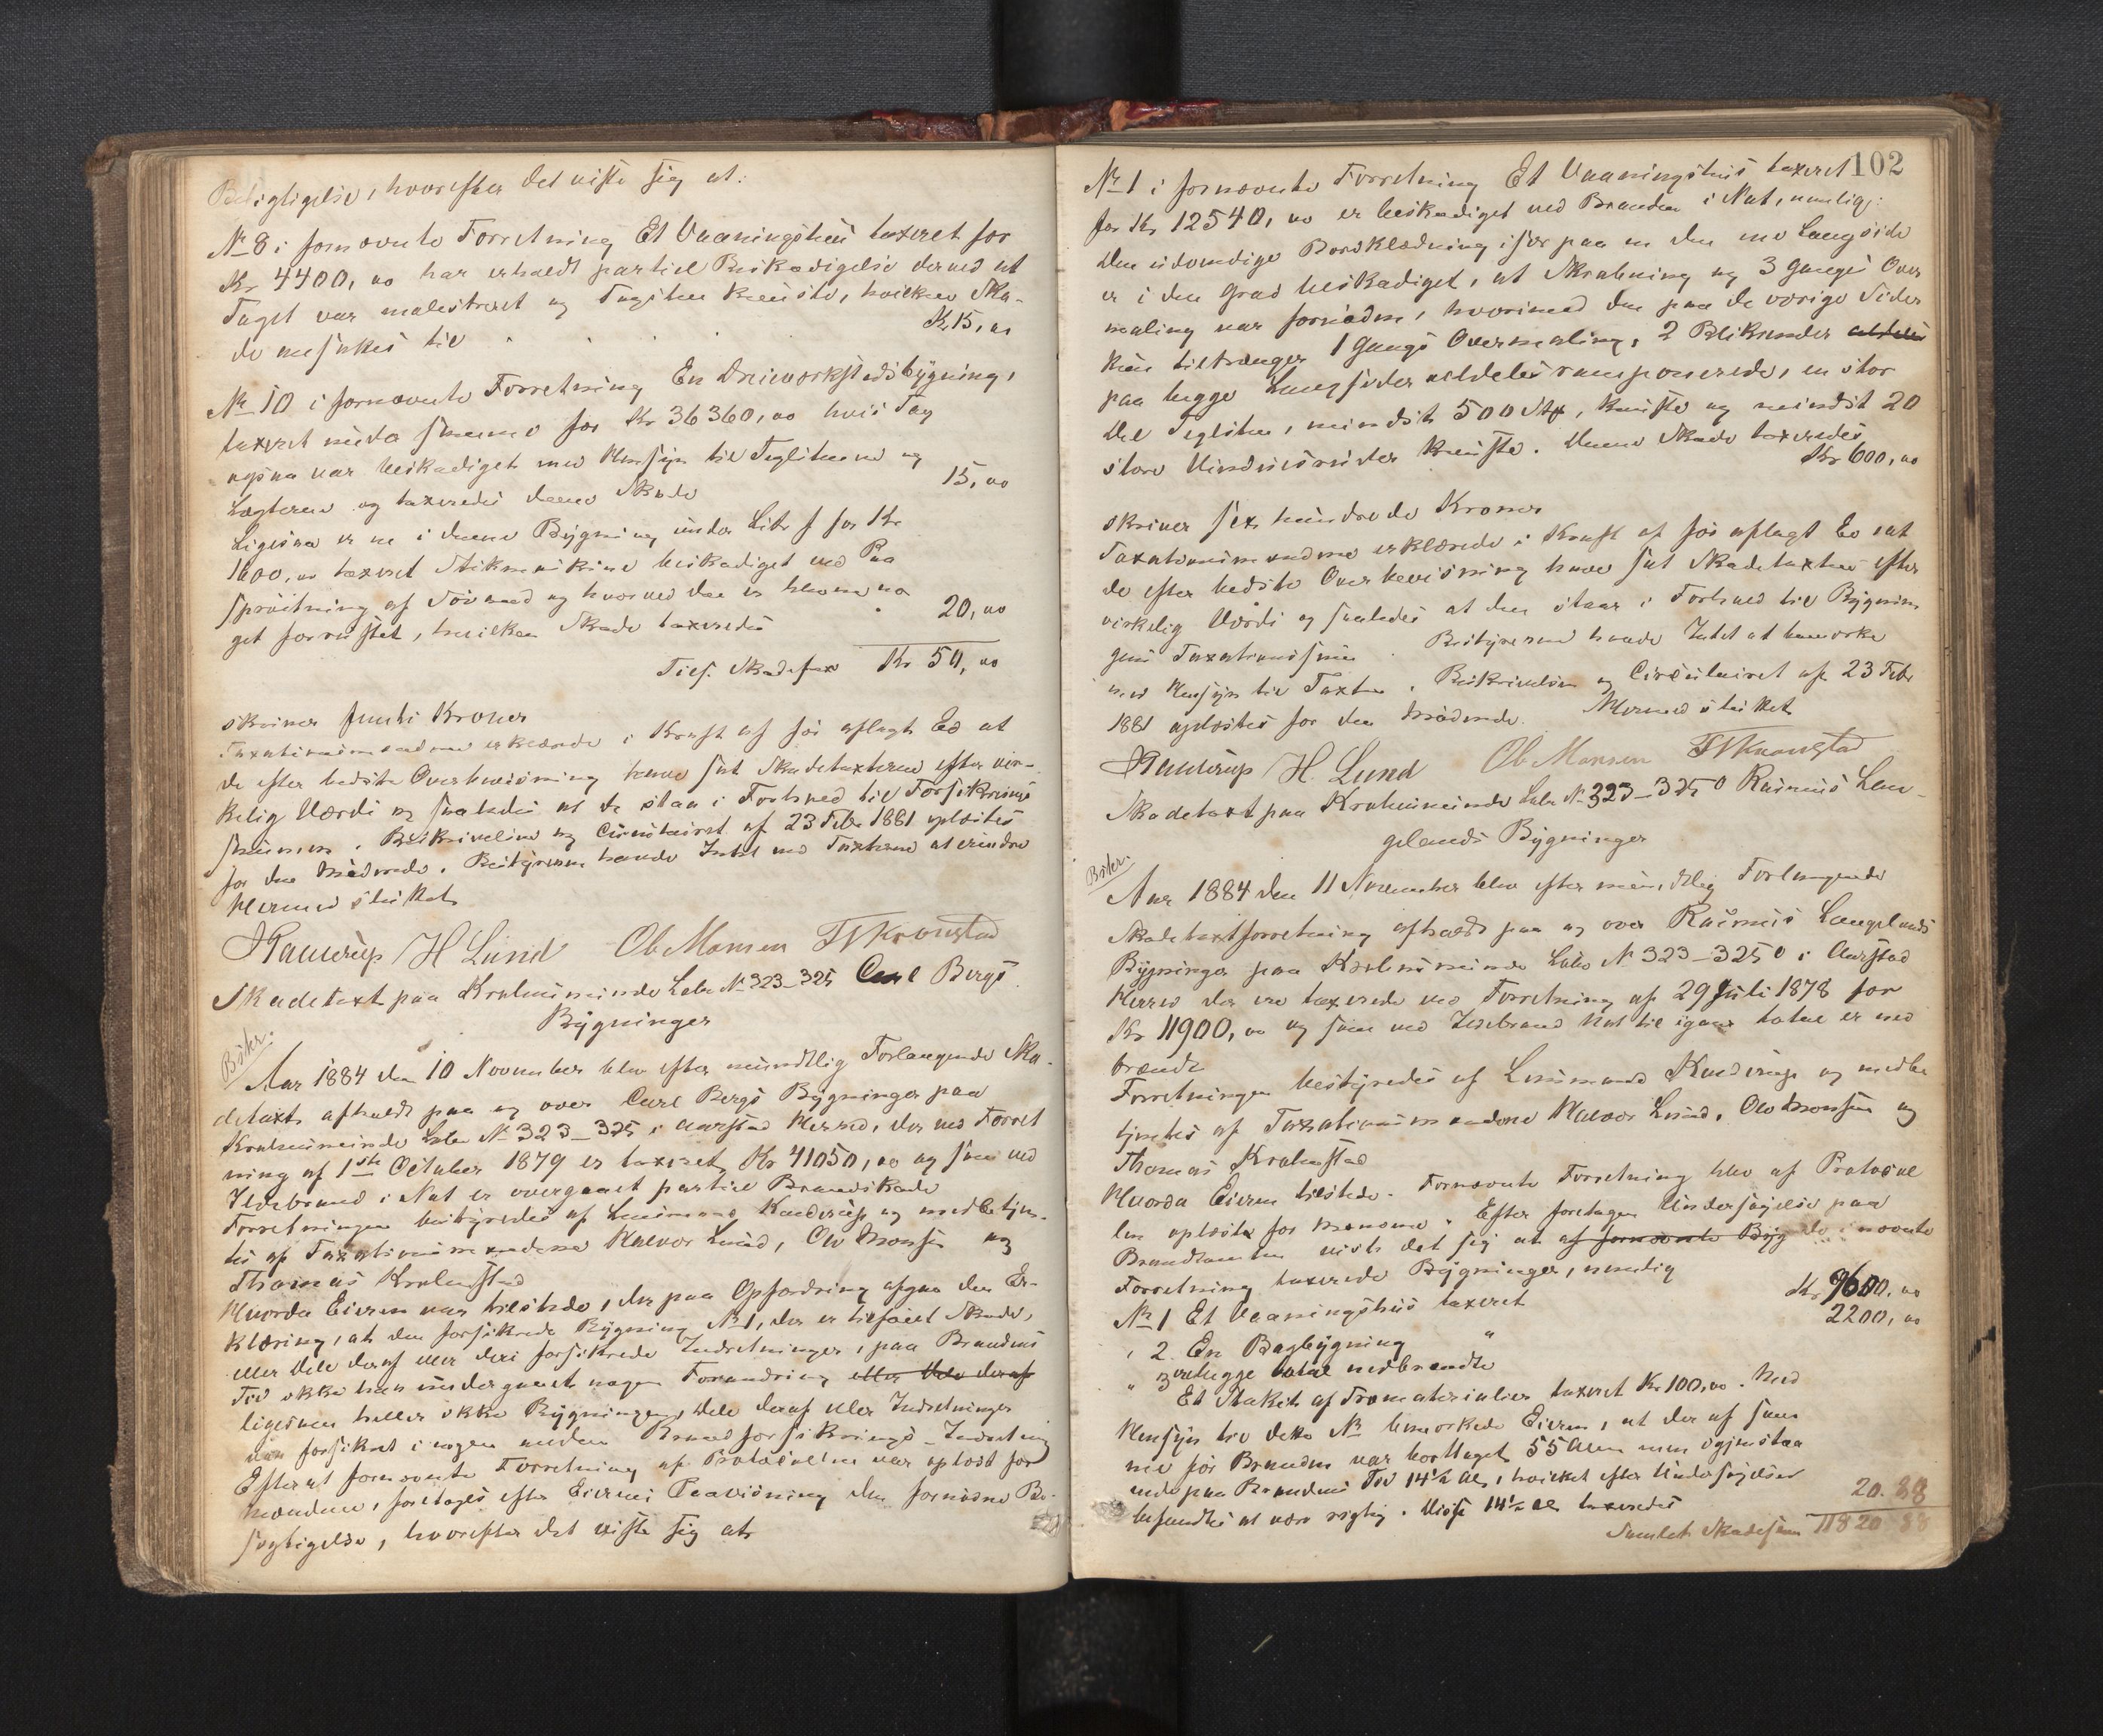 Besigtigelse, hvorefter det viste sig at:
No 8 i fornævnte Forretning Et Vaaningshus taxeret for
Kr 4400,00 har erholdt partiel Beskadigelse derved at
Taget var malestreret og Tagsten knuste, hvilken Ska-
de ansattes til Kr 15,00
No 10 i fornævnte Forretning En Dreiværkstedsbygning,
taxeret under samme for Kr 36360,00 hvis Tag
ogsaa var beskadiget med Hensyn til Teglstenene og
Lægterne og taxeredes denne Skade 15,00
Ligesaa er en i denne Bygning under Litr f for Kr
1600,00 taxeret Stikmaskine beskadiget ved Paa
sprøitning af Søvand og hvorved den er bleven no
get forrustet, hvilken Skade taxeredes 20,00
Tils. Skadetax Kr 50,00
skriver femti Kroner
Taxationsmændene erklærede i Kraft af før aflagt Ed at
de efter bedste Overbevisning have sat Skadetaxterne efter vir-
kelig Værdi og saaledes at de staa i Forhold til Forsikrings
summen. Beskrivelsen og Circulairet af 23 Febr 1881 oplæstes
for den Mødende. Bestyreren havde Intet ved Taxterne at erindre
Hermed sluttet
H Lund Ole Monsen
Skadetaxt paa Kroheminde Løbe No 323-325 Carl Bergs
Bygninger
Bskr.
Aar 1884 den 10 November blev efter mundtlig Forlangende Ska-
detaxt afholdt paa og over Carl Bergs Bygninger paa
Kroheminde Løbe No 323-325 i Aarstad Herred, der ved Forret
ning af 1ste October 1879 er taxeret Kr 41050,00 og som ved
Ildebrand i Nat er overgaaet partiel Brandskade
Forretningen bestyredes af Lensmand og medbetjen-
tes af Taxationsmændene Halvor Lund, Ole Monsen og
Thomas Krohnstad
Hvorda Eieren var tilstede, der paa Opfordring afgav den Er-
klæring, at den forsikrede Bygning No 1, der er tilføiet Skade,
eller Dele deraf eller deri forsikrede Indretninger, paa Brandens
Tid ikke han undergaaet nogen Forandring eller Dele deraf
ligesom heller ikke Bygningen, Dele deraf eller Indretninger
var forsikret i nogen anden Brandforsikrings-Indretning
Efterat fornævnte Forretning af Protocollen var oplæst for
Mændene, foretoges efter Eierens Paavisning den fornødne Be-
sigtigelse, hvorefter det viste sig at
102
No 1 i fornævnte Forretning Et Vaaningshus taxeret
for Kr 12540,00 er beskadiget ved Branden i Nat, nemlig:
Den udvendige Bordklædning især paa en den ene Langside
er i den Grad beskadiget, at Skrabning og 3 Gangs Over
maling var fornøden, hvorimod den paa de øvrige Sider
kun tiltrænger 1 Gangs Overmaling, 2 Blikrender aldeles
paa begge Langsider aldeles ramponerede, en stor
Del Teglsten, mindst 500 Stk, knuste og mindst 20
store Vinduesruder knuste. Denne Skade taxeredes
Kr 600,00
skriver sex hundrede Kroner
Taxationsmændene erklærede i Kraft af før aflagt Ed at
de efter bedste Overbevisning have sat Skadetaxten efter
virkelig Værdi og saaledes at den staar i Forhold til Bygnin
gens Taxationssum. Bestyreren havde Intet at bemærke
med Hensyn til Taxten. Beskrivelsen og Circulairet af 23 Febr
1881 oplæstes for den Mødende. Hermed sluttet
H. Lund Ole Monsen
Skadetaxt paa Kroheminde Løbe No 323-325 o Rasmus Lan-
gelands Bygninger
Bskr.
Aar 1884 den 11 November blev efter mundtlig Forlangende
Skadetaxtforretning afholdt paa og over Rasmus Langelands
Bygninger paa Kroheminde Løbe No 323-325 o i Aarstad
Herred der ere taxerede ved Forretning af 29 Juli 1878 for
Kr 11900,00 og som ved Ildebrand Nat til igaar total er ned
brændt
Forretningen bestyredes af Lensmand og medbe
tjentes af Taxationsmændene Halvor Lund, Ole Monsen og
Thomas Krohnstad
Hvorda Eieren tilstede. Fornævnte Forretning blev af Protocol
len oplæste for Mændene. Efter foretagen Undersøgelse paa
Brandtomten viste det sig at af fornævnte Byg de i nævnte
Forretning taxerede Bygninger, nemlig
No 1 Et Vaaningshus taxeret Kr 9600,00
" 2. En Bagbygning " 2200,00
ere begge total nedbrændte
" 3 Et Stakit af Træmaterialier taxeret Kr 100,00. Med
Hensyn til dette No bemærkede Eieren, at der af sam
me før Branden var borttaget 55 Alen men igjenstaa
ende paa Brandens Tid 14½ Al, hvilket efter Undersøgelsen
befandtes at være rigtig. Disse 14½ Al taxeredes 20.88
Samlet Skadesum 11820 88